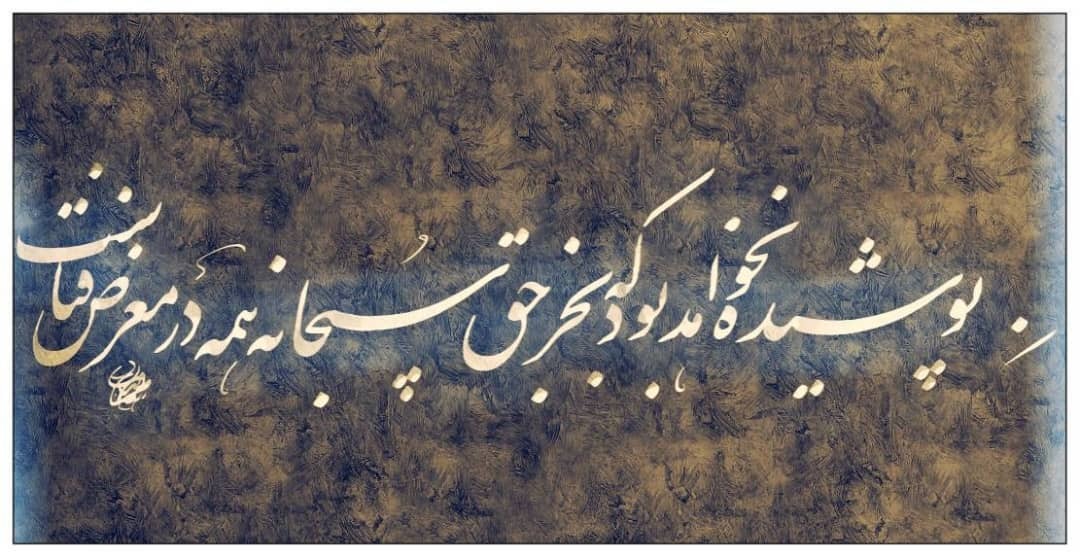 پوشیده نخواهد بود که بجز حق سبحانه همه در معرض فناست